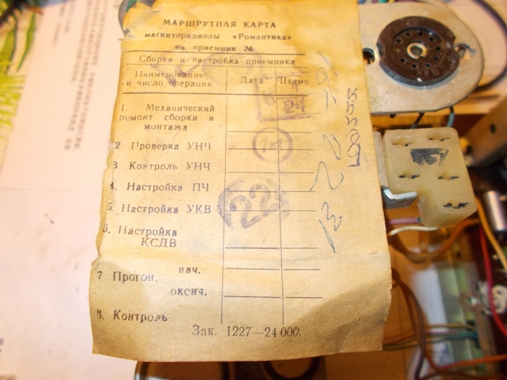 МАРШРУТНАЯ КАРТА
магниторадиолы «Романтика»
на приемник №
Сборка и настройка приемника
Наименование и число операции
Дата
1. Механический ремонт сборки и монтажа
2. Проверка УНЧ
3 Контроль УНЧ
4. Настройка ПЧ
5. Настройка УКВ
6. Настройка КСДВ
7 Прогон. нач.
оконч.
8. Контроль
Зак. 1227—24 000.
24
22